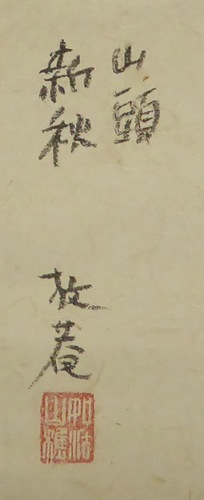 山頭
新秋
放菴